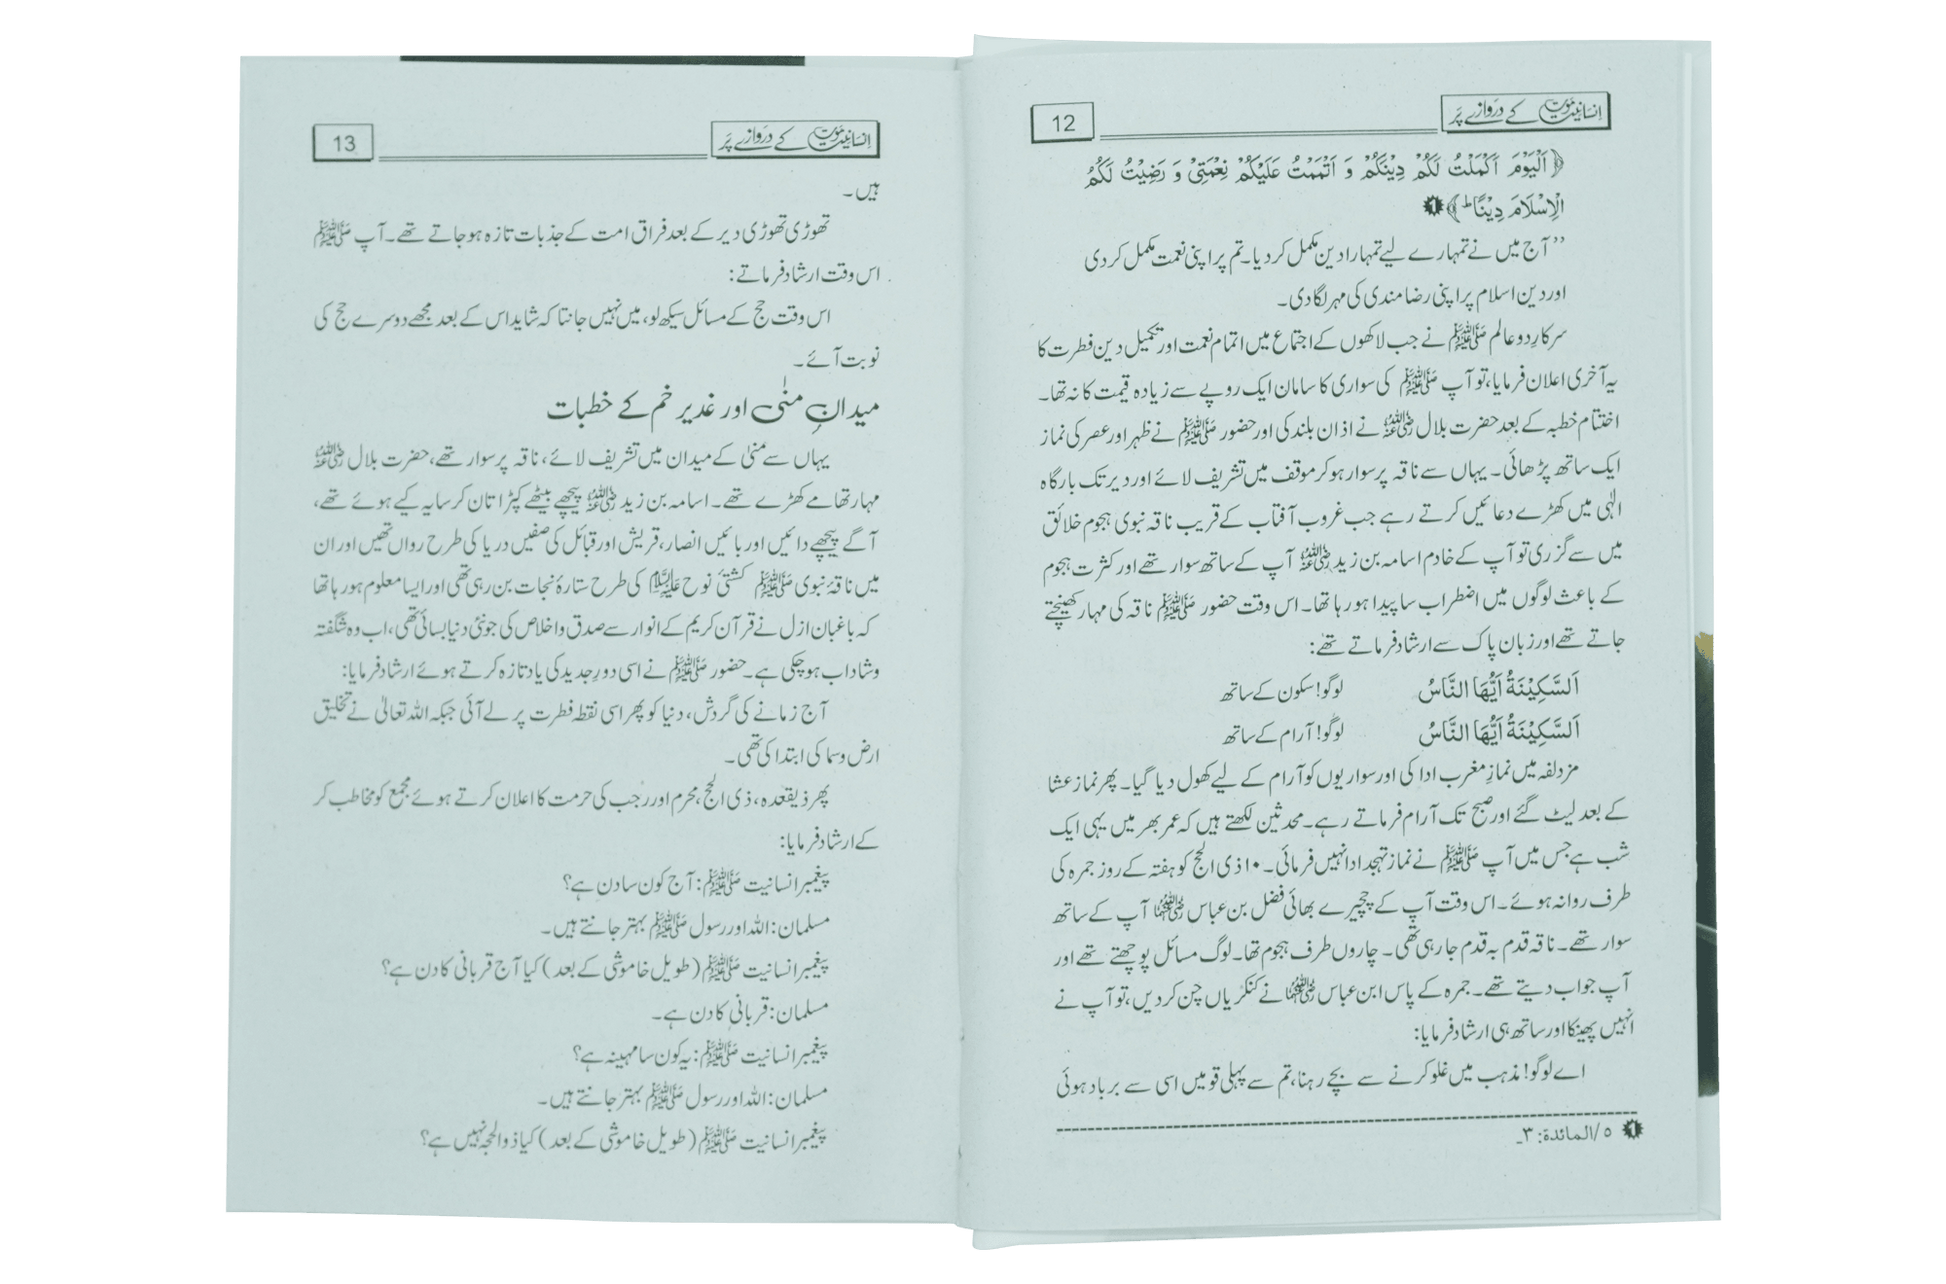 انسانیت موت کے دروازے پر
12
﴿اَلْيَوْمَ اَكْمَلْتُ لَكُمْ دِيْنَكُمْ وَ اَتْمَمْتُ عَلَيْكُمْ نِعْمَتِيْ وَ رَضِيْتُ لَكُمُ
الْاِسْلَامَ دِيْنًا ؕ﴾ ❶
’’آج میں نے تمہارے لیے تمہارا دین مکمل کر دیا۔ تم پر اپنی نعمت مکمل کر دی
اور دین اسلام پر اپنی رضا مندی کی مہر لگا دی۔
سرکارِ دو عالم ﷺ نے جب لاکھوں کے اجتماع میں اتمام نعمت اور تکمیل دین فطرت کا
یہ آخری اعلان فرمایا، تو آپ ﷺ کی سواری کا سامان ایک روپے سے زیادہ قیمت کا نہ تھا۔
اختتام خطبہ کے بعد حضرت بلال رضی اللہ عنہ نے اذان بلند کی اور حضور ﷺ نے ظہر اور عصر کی نماز
ایک ساتھ پڑھائی۔ یہاں سے ناقہ پر سوار ہو کر موقف میں تشریف لائے اور دیر تک بارگاہ
الٰہی میں کھڑے دعائیں کرتے رہے جب غروب آفتاب کے قریب ناقہ نبوی ہجوم خلائق
میں سے گزری تو آپ کے خادم اسامہ بن زید رضی اللہ عنہ آپ کے ساتھ سوار تھے اور کثرت ہجوم
کے باعث لوگوں میں اضطراب سا پیدا ہو رہا تھا۔ اس وقت حضور ﷺ ناقہ کی مہار کھینچتے
جاتے تھے اور زبان پاک سے ارشاد فرماتے تھے:
اَلسَّكِيْنَةُ اَيُّهَا النَّاسُ لوگو! سکون کے ساتھ
اَلسَّكِيْنَةُ اَيُّهَا النَّاسُ لوگو! آرام کے ساتھ
مزدلفہ میں نمازِ مغرب ادا کی اور سواریوں کو آرام کے لیے کھول دیا گیا۔ پھر نماز عشا
کے بعد لیٹ گئے اور صبح تک آرام فرماتے رہے۔ محدثین لکھتے ہیں کہ عمر بھر میں یہی ایک
شب ہے جس میں آپ ﷺ نے نماز تہجد ادا نہیں فرمائی۔ ۱۰ ذی الحج کو ہفتہ کے روز جمرہ کی
طرف روانہ ہوئے۔ اس وقت آپ کے چچیرے بھائی فضل بن عباس رضی اللہ عنہما آپ کے ساتھ
سوار تھے۔ ناقہ قدم بہ قدم جا رہی تھی۔ چاروں طرف ہجوم تھا۔ لوگ مسائل پوچھتے تھے اور
آپ جواب دیتے تھے۔ جمرہ کے پاس ابن عباس رضی اللہ عنہما نے کنکریاں چن کر دیں، تو آپ نے
انہیں پھینکا اور ساتھ ہی ارشاد فرمایا:
اے لوگو! مذہب میں غلو کرنے سے بچے رہنا، تم سے پہلی قومیں اسی سے برباد ہوئی
❶ ۵/المائدة: ۳۔
انسانیت موت کے دروازے پر
13
ہیں۔
تھوڑی تھوڑی دیر کے بعد فراق امت کے جذبات تازہ ہو جاتے تھے۔ آپ ﷺ
اس وقت ارشاد فرماتے:
اس وقت حج کے مسائل سیکھ لو، میں نہیں جانتا کہ شاید اس کے بعد مجھے دوسرے حج کی
نوبت آئے۔
میدانِ منٰی اور غدیر خم کے خطبات
یہاں سے منیٰ کے میدان میں تشریف لائے، ناقہ پر سوار تھے، حضرت بلال رضی اللہ عنہ
مہار تھامے کھڑے تھے۔ اسامہ بن زید رضی اللہ عنہ پیچھے بیٹھے کپڑا تان کر سایہ کیے ہوئے تھے،
آگے پیچھے دائیں اور بائیں انصار، قریش اور قبائل کی صفیں دریا کی طرح رواں تھیں اور ان
میں ناقۂ نبوی ﷺ کشتیٔ نوح علیہ السلام کی طرح ستارۂ نجات بن رہی تھی اور ایسا معلوم ہو رہا تھا
کہ باغبان ازل نے قرآن کریم کے انوار سے صدق و اخلاص کی جو نئی دنیا بسائی تھی، اب وہ شگفتہ
و شاداب ہو چکی ہے۔ حضور ﷺ نے اسی دورِ جدید کی یاد تازہ کرتے ہوئے ارشاد فرمایا:
آج زمانے کی گردش، دنیا کو پھر اسی نقطہ فطرت پر لے آئی جبکہ اللہ تعالیٰ نے تخلیق
ارض و سما کی ابتدا کی تھی۔
پھر ذیقعدہ، ذی الحج، محرم اور رجب کی حرمت کا اعلان کرتے ہوئے مجمع کو مخاطب کر
کے ارشاد فرمایا:
پیغمبر انسانیت ﷺ: آج کون سا دن ہے؟
مسلمان: اللہ اور رسول ﷺ بہتر جانتے ہیں۔
پیغمبر انسانیت ﷺ (طویل خاموشی کے بعد) کیا آج قربانی کا دن ہے؟
مسلمان: قربانی کا دن ہے۔
پیغمبر انسانیت ﷺ: یہ کون سا مہینہ ہے؟
مسلمان: اللہ اور رسول ﷺ بہتر جانتے ہیں۔
پیغمبر انسانیت ﷺ (طویل خاموشی کے بعد) کیا ذوالحجہ نہیں ہے؟